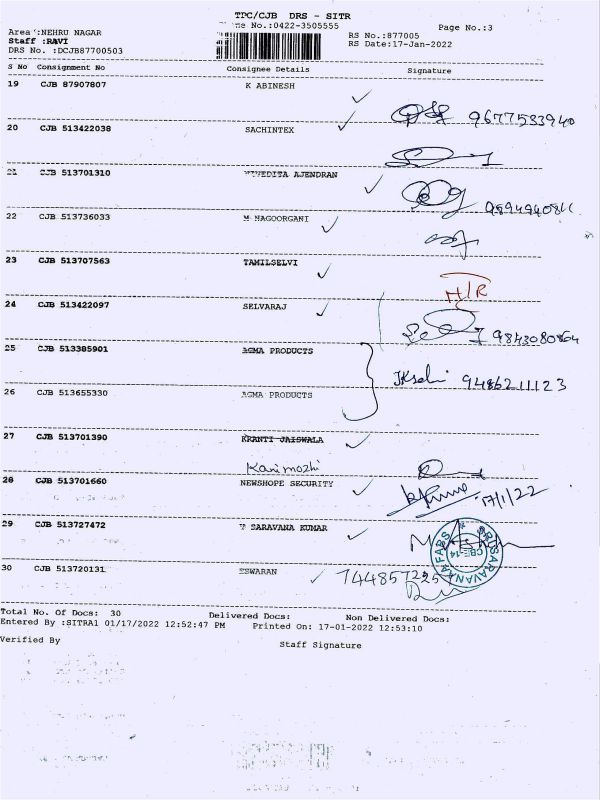 TPC/CJB DRS - SITR
Area :NEHRU NAGAR No.:0422-3505555 Page No.:3
Staff :RAVI RS No.:877005
DRS No. :DCJB87700503 RS Date:17-Jan-2022
S No Consignment No Consignee Details Signature
19 CJB 87907807 K ABINESH
9677533940
20 CJB 513422038 SACHINTEX
21 CJB 513701310 NIVEDITA AJENDRAN
9894940811
22 CJB 513736033 M NAGOORGANI
23 CJB 513707563 TAMILSELVI
N/R
24 CJB 513422097 SELVARAJ
9843080864
25 CJB 513385901 AGMA PRODUCTS
9486211123
26 CJB 513655330 AGMA PRODUCTS
27 CJB 513701390 KRANTI JAISWALA
Kanimozhi
28 CJB 513701660 NEWSHOPE SECURITY
17/1/22
29 CJB 513727472 SARAVANA KUMAR
SRI SARAVANA FABS
CBE-14
30 CJB 513720131 ESWARAN
Total No. Of Docs: 30 Delivered Docs: Non Delivered Docs:
Entered By :SITRA1 01/17/2022 12:52:47 PM Printed On: 17-01-2022 12:53:10
Verified By Staff Signature